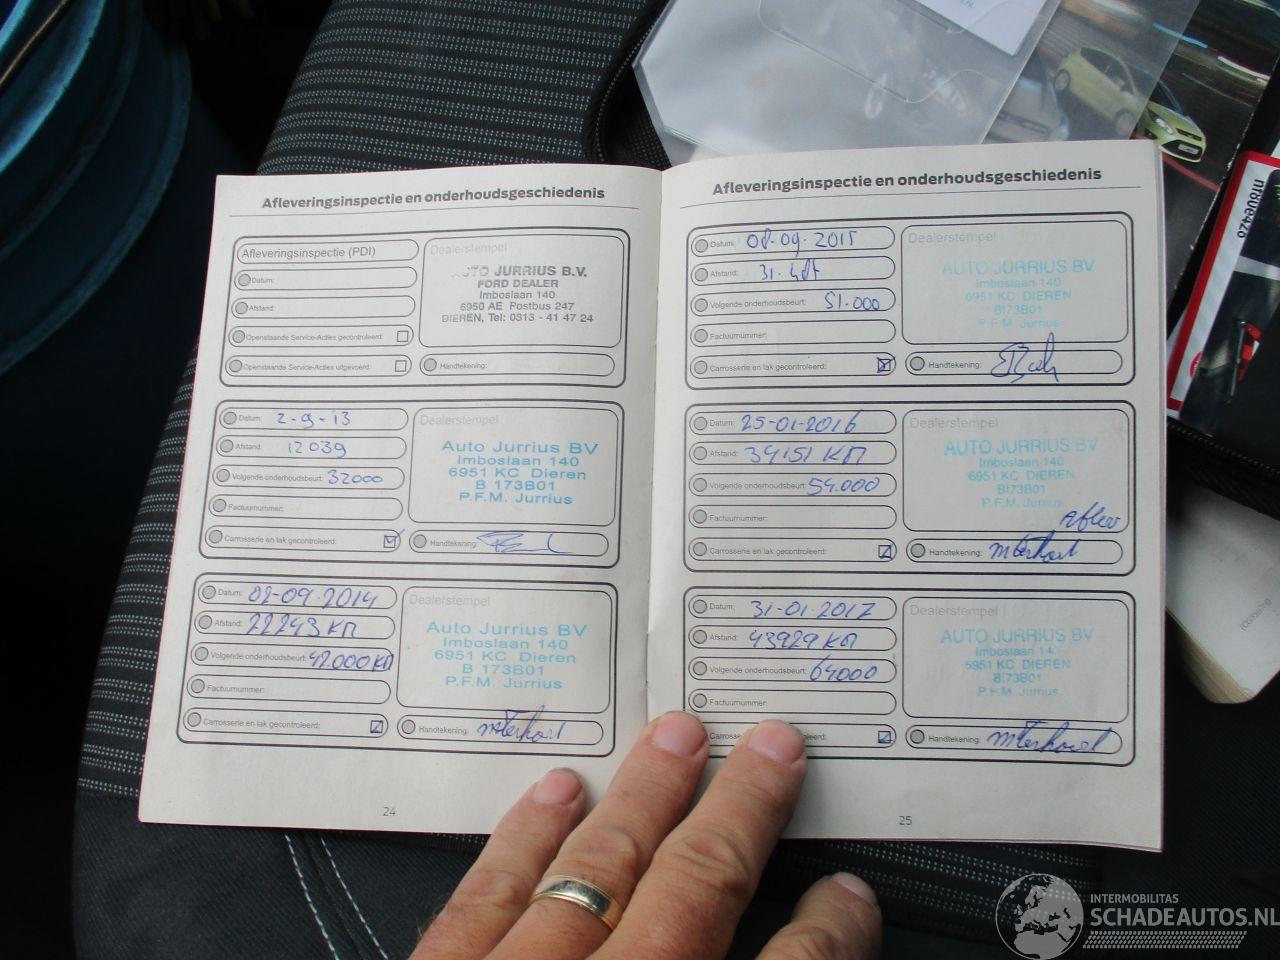 Afleveringsinspectie en onderhoudsgeschiedenis
Afleveringsinspectie (PDI)
Datum:
Afstand:
Openstaande Service-Acties gecontroleerd:
Openstaande Service-Acties uitgevoerd:
Dealerstempel
AUTO JURRIUS B.V.
FORD DEALER
Imboslaan 140
6950 AE Postbus 247
DIEREN, Tel: 0313 - 41 47 24
Handtekening:
Datum: 2-9-13
Afstand: 12039
Volgende onderhoudsbeurt: 32000
Factuurnummer:
Carrosserie en lak gecontroleerd:
Dealerstempel
Auto Jurrius BV
Imboslaan 140
6951 KC Dieren
B 173B01
P.F.M. Jurrius
Handtekening:
Datum: 08-09-2014
Afstand: 22243 KM
Volgende onderhoudsbeurt: 42.000 KM
Factuurnummer:
Carrosserie en lak gecontroleerd:
Dealerstempel
Auto Jurrius BV
Imboslaan 140
6951 KC Dieren
B 173B01
P.F.M. Jurrius
Handtekening:
24
Afleveringsinspectie en onderhoudsgeschiedenis
Datum: 08-09-2015
Afstand:
Volgende onderhoudsbeurt: 51.000
Factuurnummer:
Carrosserie en lak gecontroleerd:
Dealerstempel
AUTO JURRIUS BV
Imboslaan 140
6951 KC DIEREN
BI73B01
P.F.M. Jurrius
Handtekening:
Datum: 25-01-2016
Afstand: 34151 KM
Volgende onderhoudsbeurt: 54.000
Factuurnummer:
Carrosserie en lak gecontroleerd:
Dealerstempel
AUTO JURRIUS BV
Imboslaan 140
6951 KC DIEREN
BI73B01
P.F.M. Jurrius
Aflev
Handtekening:
Datum: 31-01-2017
Afstand: 43929 KM
Volgende onderhoudsbeurt: 64000
Factuurnummer:
Dealerstempel
AUTO JURRIUS BV
Imboslaan 14
6951 KC DIEREN
BI73B01
P.F.M. Jurrius
Handtekening:
25
INTERMOBILITAS
SCHADEAUTOS.NL